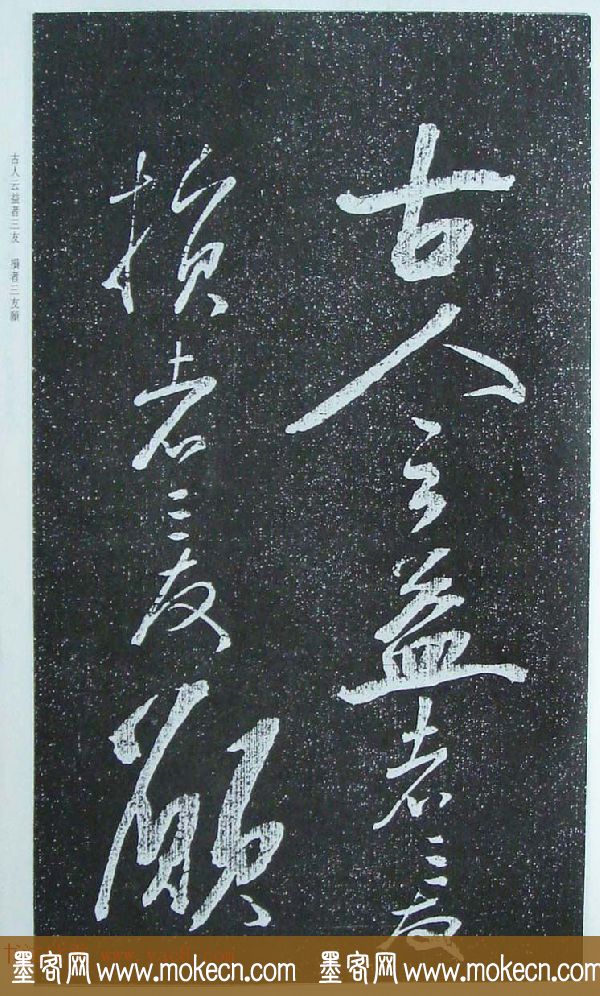 古人云益者三友
損者三友願
古人云益者三友 損者三友願
墨客网 www.mokecn.com 墨客网 www.mokecn.com